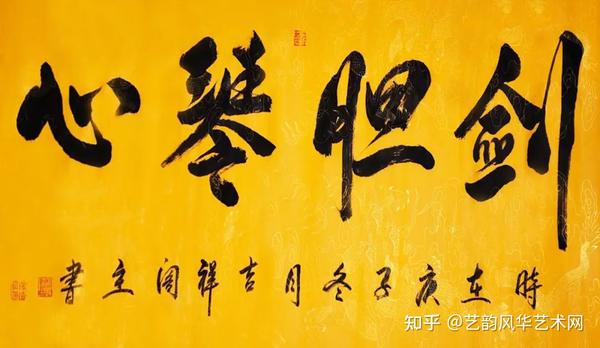 剑胆琴心
時在庚子冬月吉祥阁主書
知乎 @艺韵风华艺术网